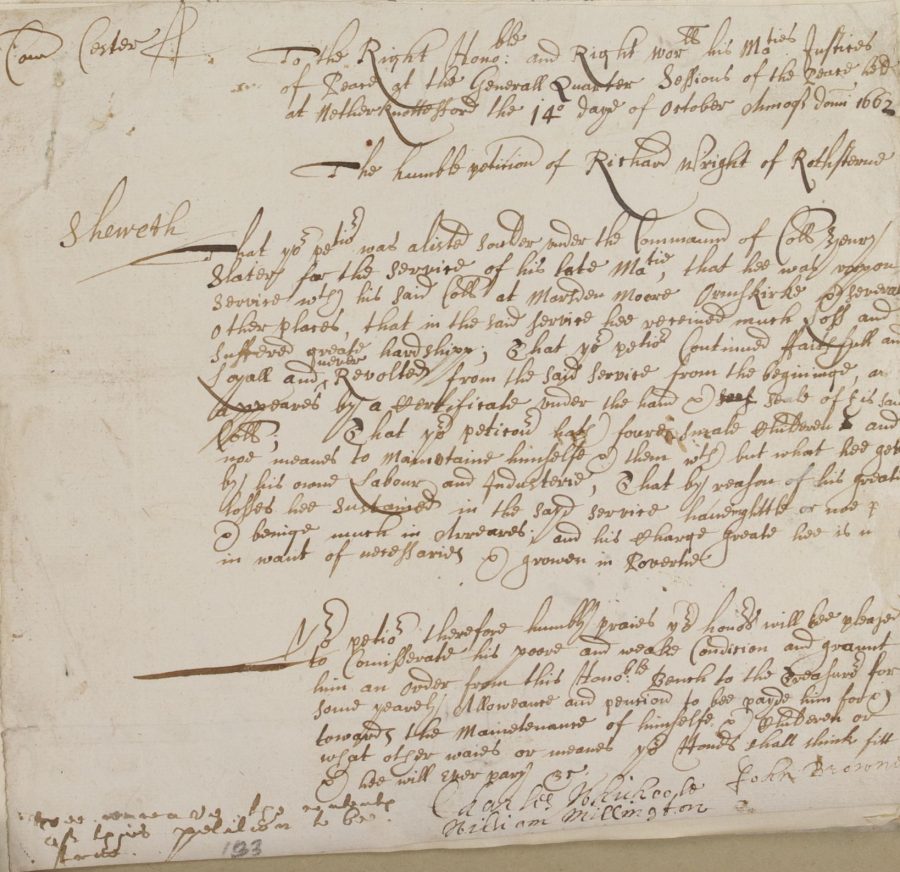 Com Cester
To the Right Hono:ble and Right wor:lls his Ma:ties Justices
of Peace at the Generall Quarter Sessions of the Peace held
at Netherknottesford the 14th daye of October Annoqe domi 1662
The humble peticion of Richard Wright of Rothsterne
Sheweth
That yor petior was a listed souldier under the Command of Colls Henry
Slater for the service of his late Matie, that hee was uppon
service wth his said Colls at Marsden Moore Ormskirke & severall
other places, that in the said service hee received much Loss and
suffered greate hardshipp; That yor petior Continued faithfull and
Loyall and never Revolted from the said service from the beginninge, as
appeares by a Certificate under the hand & seale of his said
Colls; That yor peticour hath foure smale Children and
noe meanes to Maintaine himselfe & them wth but what hee gets
by his owne Labour and Industerie, That by reason of his greate
losses hee sustained in the said service haveinge little or noe
& beinge much in Arreares: and his Charge greate hee is
in want of necessaries & growen in Povertie
Yor petior therefore humbly praies yor honors will bee pleased
to Comisserate his poore and weake Condicion and graunt
him an order from this Honoble Bench to the Treasurer for
some yearely Alloweance and pencion to bee payde him for &
towards the Maintenance of himselfe & Children or
what other waies or meanes yor Honors shall think fitt
& hee will Ever pary &c
John Browne
Charles
William Millington
the contents
of this petition to be
true.
133